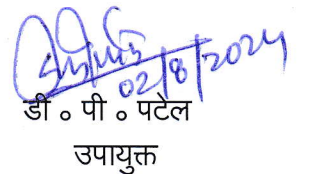 02/8/2024
डी ० पी ० पटेल
उपायुक्त